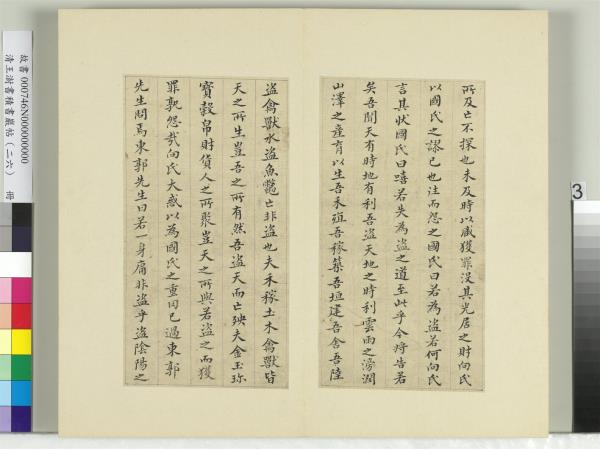 所及亡不探也未及時以臧獲罪沒其先居之財向氏
以國氏之謬己也往而怨之國氏曰若為盜若何向氏
言其狀國氏曰嘻若失為盜之道至此乎今將告若
矣吾聞天有時地有利吾盜天地之時利雲雨之滂潤
山澤之產育以生吾禾殖吾稼築吾垣建吾舍吾陸
盜禽獸水盜魚鼈亡非盜也夫禾稼土木禽獸皆
天之所生豈吾之所有然吾盜天而亡殃夫金玉珍
寶穀帛財貨人之所聚豈天之所與若盜之而獲
罪孰怨哉向氏大惑以為國氏之重罔己過東郭
先生問焉東郭先生曰若一身庸非盜乎盜陰陽之
故書000746N000000000
清王澍書積書巖帖(二六) 冊
3